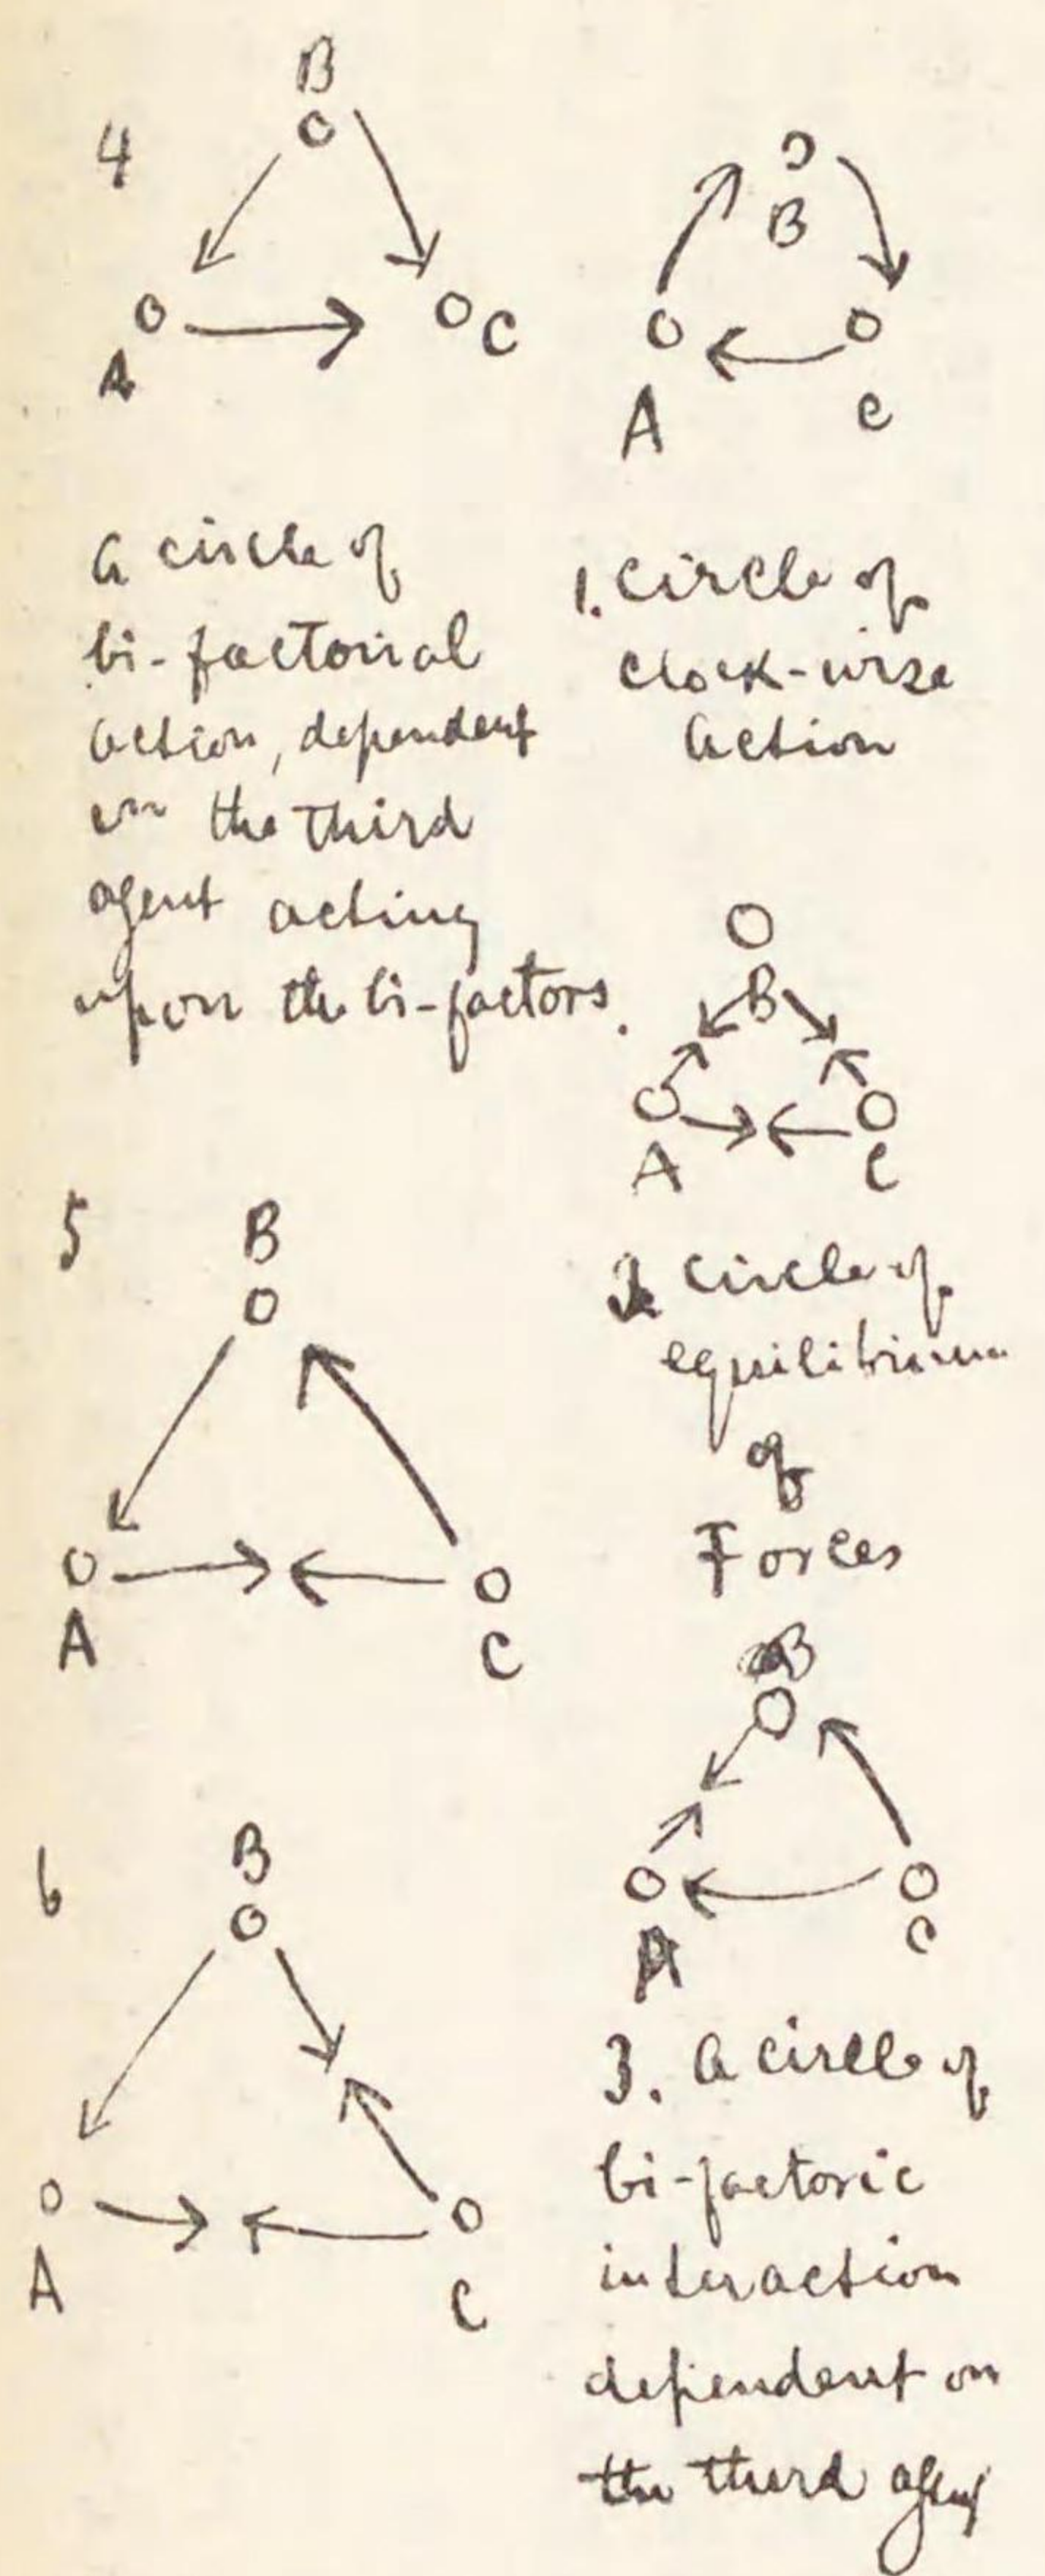 4
B
A
C
a circle of
bi-factorial
action, dependent
on the third
agent acting
upon the bi-factors.
5
B
A
C
6
B
A
C
B
A
C
1. circle of
clock-wise
action
B
A
C
2 circle of
equilibrium
of
Forces
B
A
C
3. a circle of
bi-factoric
interaction
dependent on
the third agent